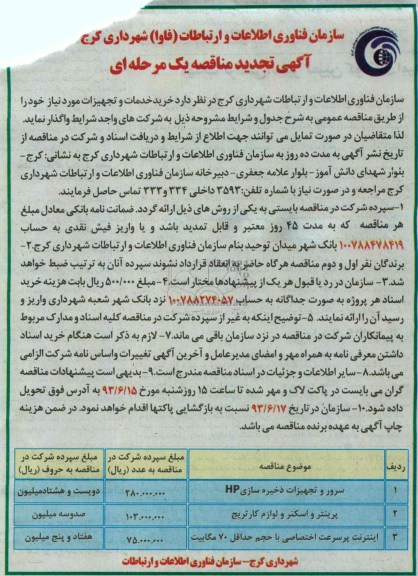 سازمان فناوری اطلاعات و ارتباطات (فاوا) شهرداری کرج
آگهی تجدید مناقصه یک مرحله ای
سازمان فناوری اطلاعات و ارتباطات شهرداری کرج در نظر دارد خریدخدمات و تجهیزات مورد نیاز خود را
از طریق مناقصه عمومی به شرح جدول و شرایط مشروحه ذیل به شرکت های واجد شرایط واگذار نماید.
لذا متقاضیان در صورت تمایل می توانند جهت اطلاع از شرایط و دریافت اسناد و شرکت در مناقصه از
تاریخ نشر آگهی به مدت ده روز به سازمان فناوری اطلاعات و ارتباطات شهرداری کرج به نشانی: کرج-
بنوار شهدای دانش آموز- بلوار علامه جعفری- دبیرخانه سازمان فناوری اطلاعات و ارتباطات شهرداری
کرج مراجعه و در صورت نیاز با شماره تلفن: ۳۵۹۲ داخلی ۳۳۴ و ۳۳۲ تماس حاصل فرمایند.
۱-سپرده شرکت در مناقصه بایستی به یکی از روش های ذیل ارائه گردد. ضمانت نامه بانکی معادل مبلغ
هر مناقصه که به مدت ۴۵ روز معتبر و قابل تمدید باشد و یا واریز فیش نقدی به حساب
۱۰۰۷۸۸۴۷۸۴۱۹ بانک شهر میدان توحید بنام سازمان فناوری اطلاعات و ارتباطات شهرداری کرج.۲-
برندگان نفر اول و دوم مناقصه هرگاه حاضر به انعقاد قرارداد نشوند سپرده آنان به ترتیب ضبط خواهد
شد.۳- سازمان در رد یا قبول هر یک از پیشنهادها مختار است.۴- مبلغ ۵۰۰/۰۰۰ ریال بابت هزینه خرید
اسناد هر پروژه به صورت جداگانه به حساب ۱۰۰۷۸۸۲۷۴۰۵۷ نزد بانک شهر شعبه شهرداری واریز و
رسید آن را ارائه نمایند. ۵- توضیح اینکه به غیر از سپرده شرکت در مناقصه کلیه اسناد و مدارک مربوط
به پیمانکاران شرکت در مناقصه در نزد سازمان باقی می ماند.۷- لازم به ذکر است هنگام خرید اسناد
داشتن معرفی نامه به همراه مهر و امضای مدیرعامل و آخرین آگهی تغییرات و اساس نامه شرکت الزامی
می باشد.۸- سایر اطلاعات و جزئیات در اسناد مناقصه مندرج است.۹- بدیهی است پیشنهادات مناقصه
گران می بایست در پاکت لاک و مهر شده تا ساعت ۱۵ روزشنبه مورخ ۹۳/۶/۱۵ به آدرس فوق تحویل
داده شود.۱۰- سازمان در تاریخ ۹۳/۶/۱۷ نسبت به بازگشایی پاکتها اقدام خواهد نمود. در ضمن هزینه
چاپ آگهی به عهده برنده مناقصه می باشد.
ردیف موضوع مناقصه مبلغ سپرده شرکت در مناقصه به عدد (ریال) مبلغ سپرده شرکت در مناقصه به حروف (ریال)
۱ سرور و تجهیزات ذخیره سازی HP ۲۸۰.۰۰۰.۰۰۰ دویست و هشتادمیلیون
۲ پرینتر و اسکنر و لوازم کارتریج ۱۰۳.۰۰۰.۰۰۰ صدوسه میلیون
۳ اینترنت پرسرعت اختصاصی با حجم حداقل ۷۰ مگابیت ۷۵.۰۰۰.۰۰۰ هفتاد و پنج میلیون
شهرداری کرج- سازمان فناوری اطلاعات و ارتباطات